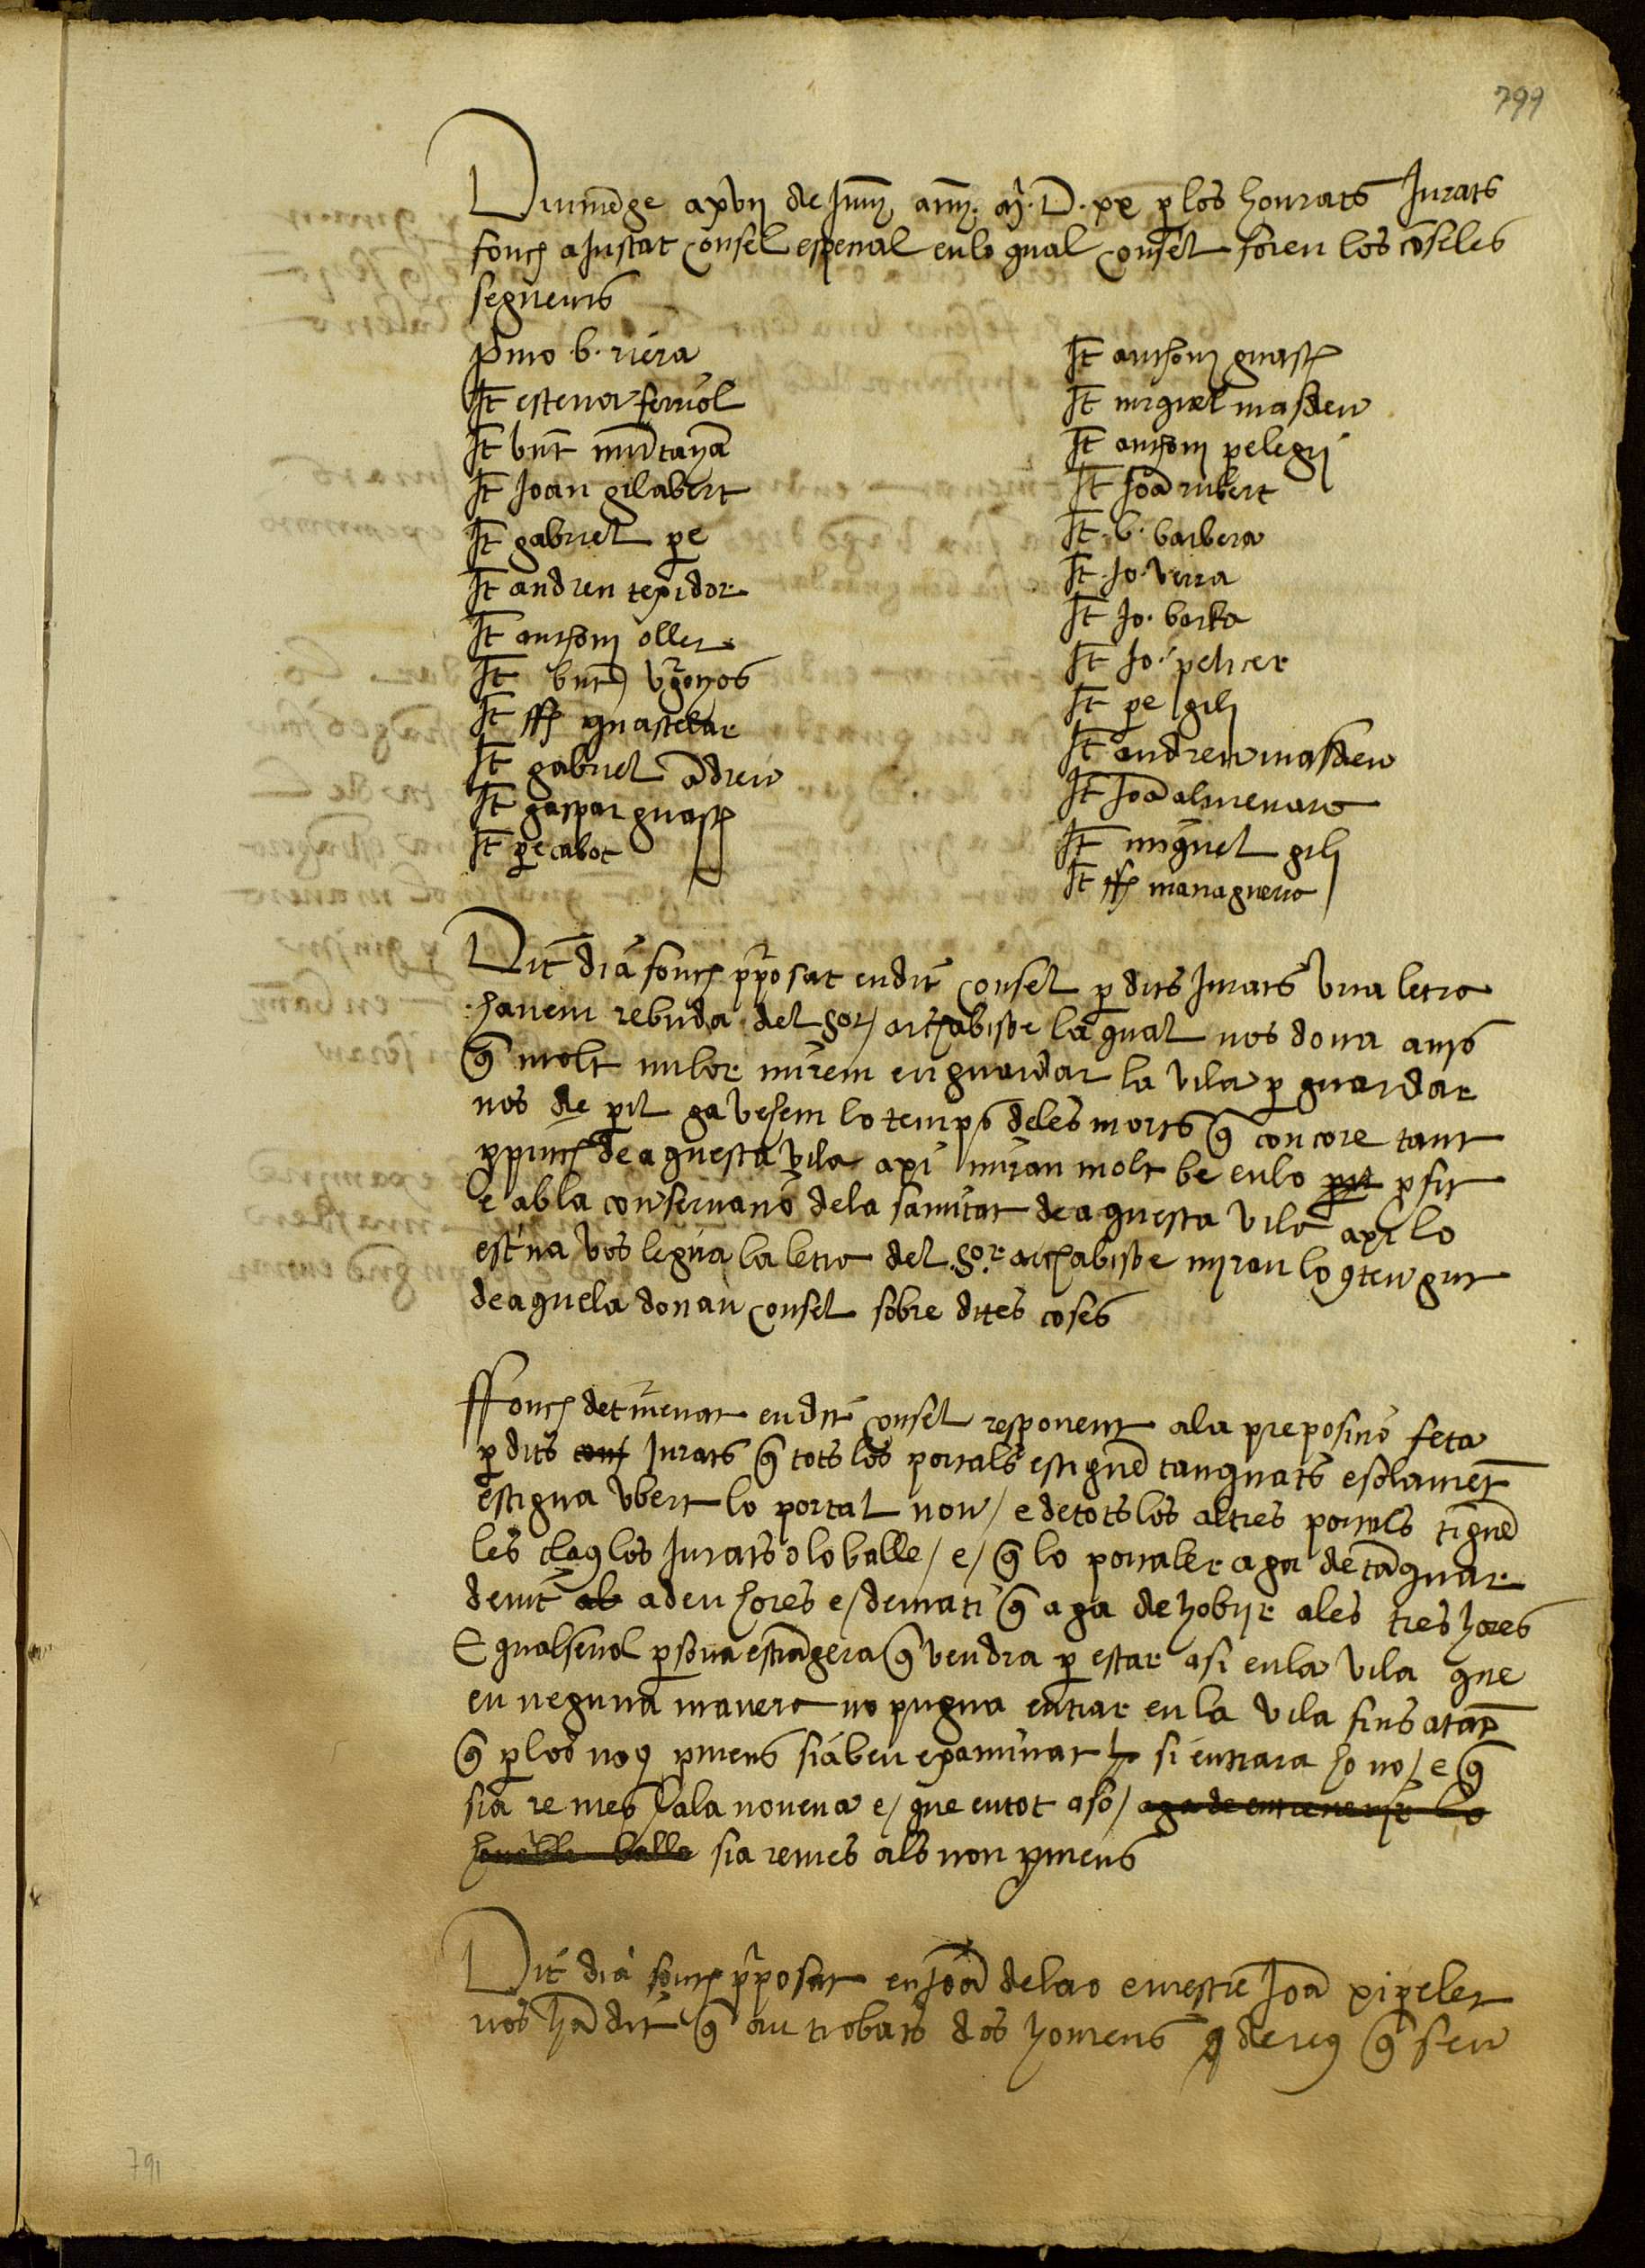 799
Diumēge a xvii de Juny any M. D. xx p los honrats Jurats
fonch aJustat consel espesial en lo qual consel foren los cōseles
seguents
Pmo b. riera
It esteva ferriol
It bnt muntayā
It Joan gilabert
It gabriel pe
It andreu texidor
It anthoni oller
It bnt vgonyos
It ffh guastelar
It gabriel ādreu
It gaspar guasch
It pe cabot
It anthoni guasch
It miquel masdeu
It anthoni pelegri
It Joā rubert
It b. barbera
It Jo. veira
It Jo.
It Jo. pelicer
It pe gili
It andreu masdeu
It Joā almenara
It miquel gili
It ffh managuera
Dit dia fonch pposat en dit consel p dits Jurats una letra
havem rebuda del Sor archabisbe la qual nos dona avis
q molt milor mirem en guardar la vila p guardar
nos de pil ga vesem lo temps deles morts q con core tant
ppinch de aquesta vila axi mirau molt be en lo pfit
e ab la conservasio dela sanitat de aquesta vila axi lo
escriva vos legira la letra del Sor archabisbe myrau lo contengut
de aquela donau consel sobre dites coses
Ffonch detmenat en dit consel responent ala preposisio feta
p dits Jurats q tots los portals estiguē tanquats e solamēt
estigua ubert lo portal nou / e de tots los altres portals tiguē
les claus los Jurats o lo balle / e / q lo portaler aga de tāquar
de nit a deu hores e / de mati q aga de hobrir ales tres hores
E qualsevol psona estrāgera q vendra p estar asi en la vila que
en neguna manera no pugua entrar en la vila fins atāt
q p los nou pmens sia ben examinat si entrara ho no / e q
sia remes ala novena e / que en tot aso / aga de entrevenir lo
honorable balle sia remes als nou pmens
Dit dia fonch pposat en Joā delao e mestre Joā xipeler
nos hā dit q an trobats dos homens q seu
791